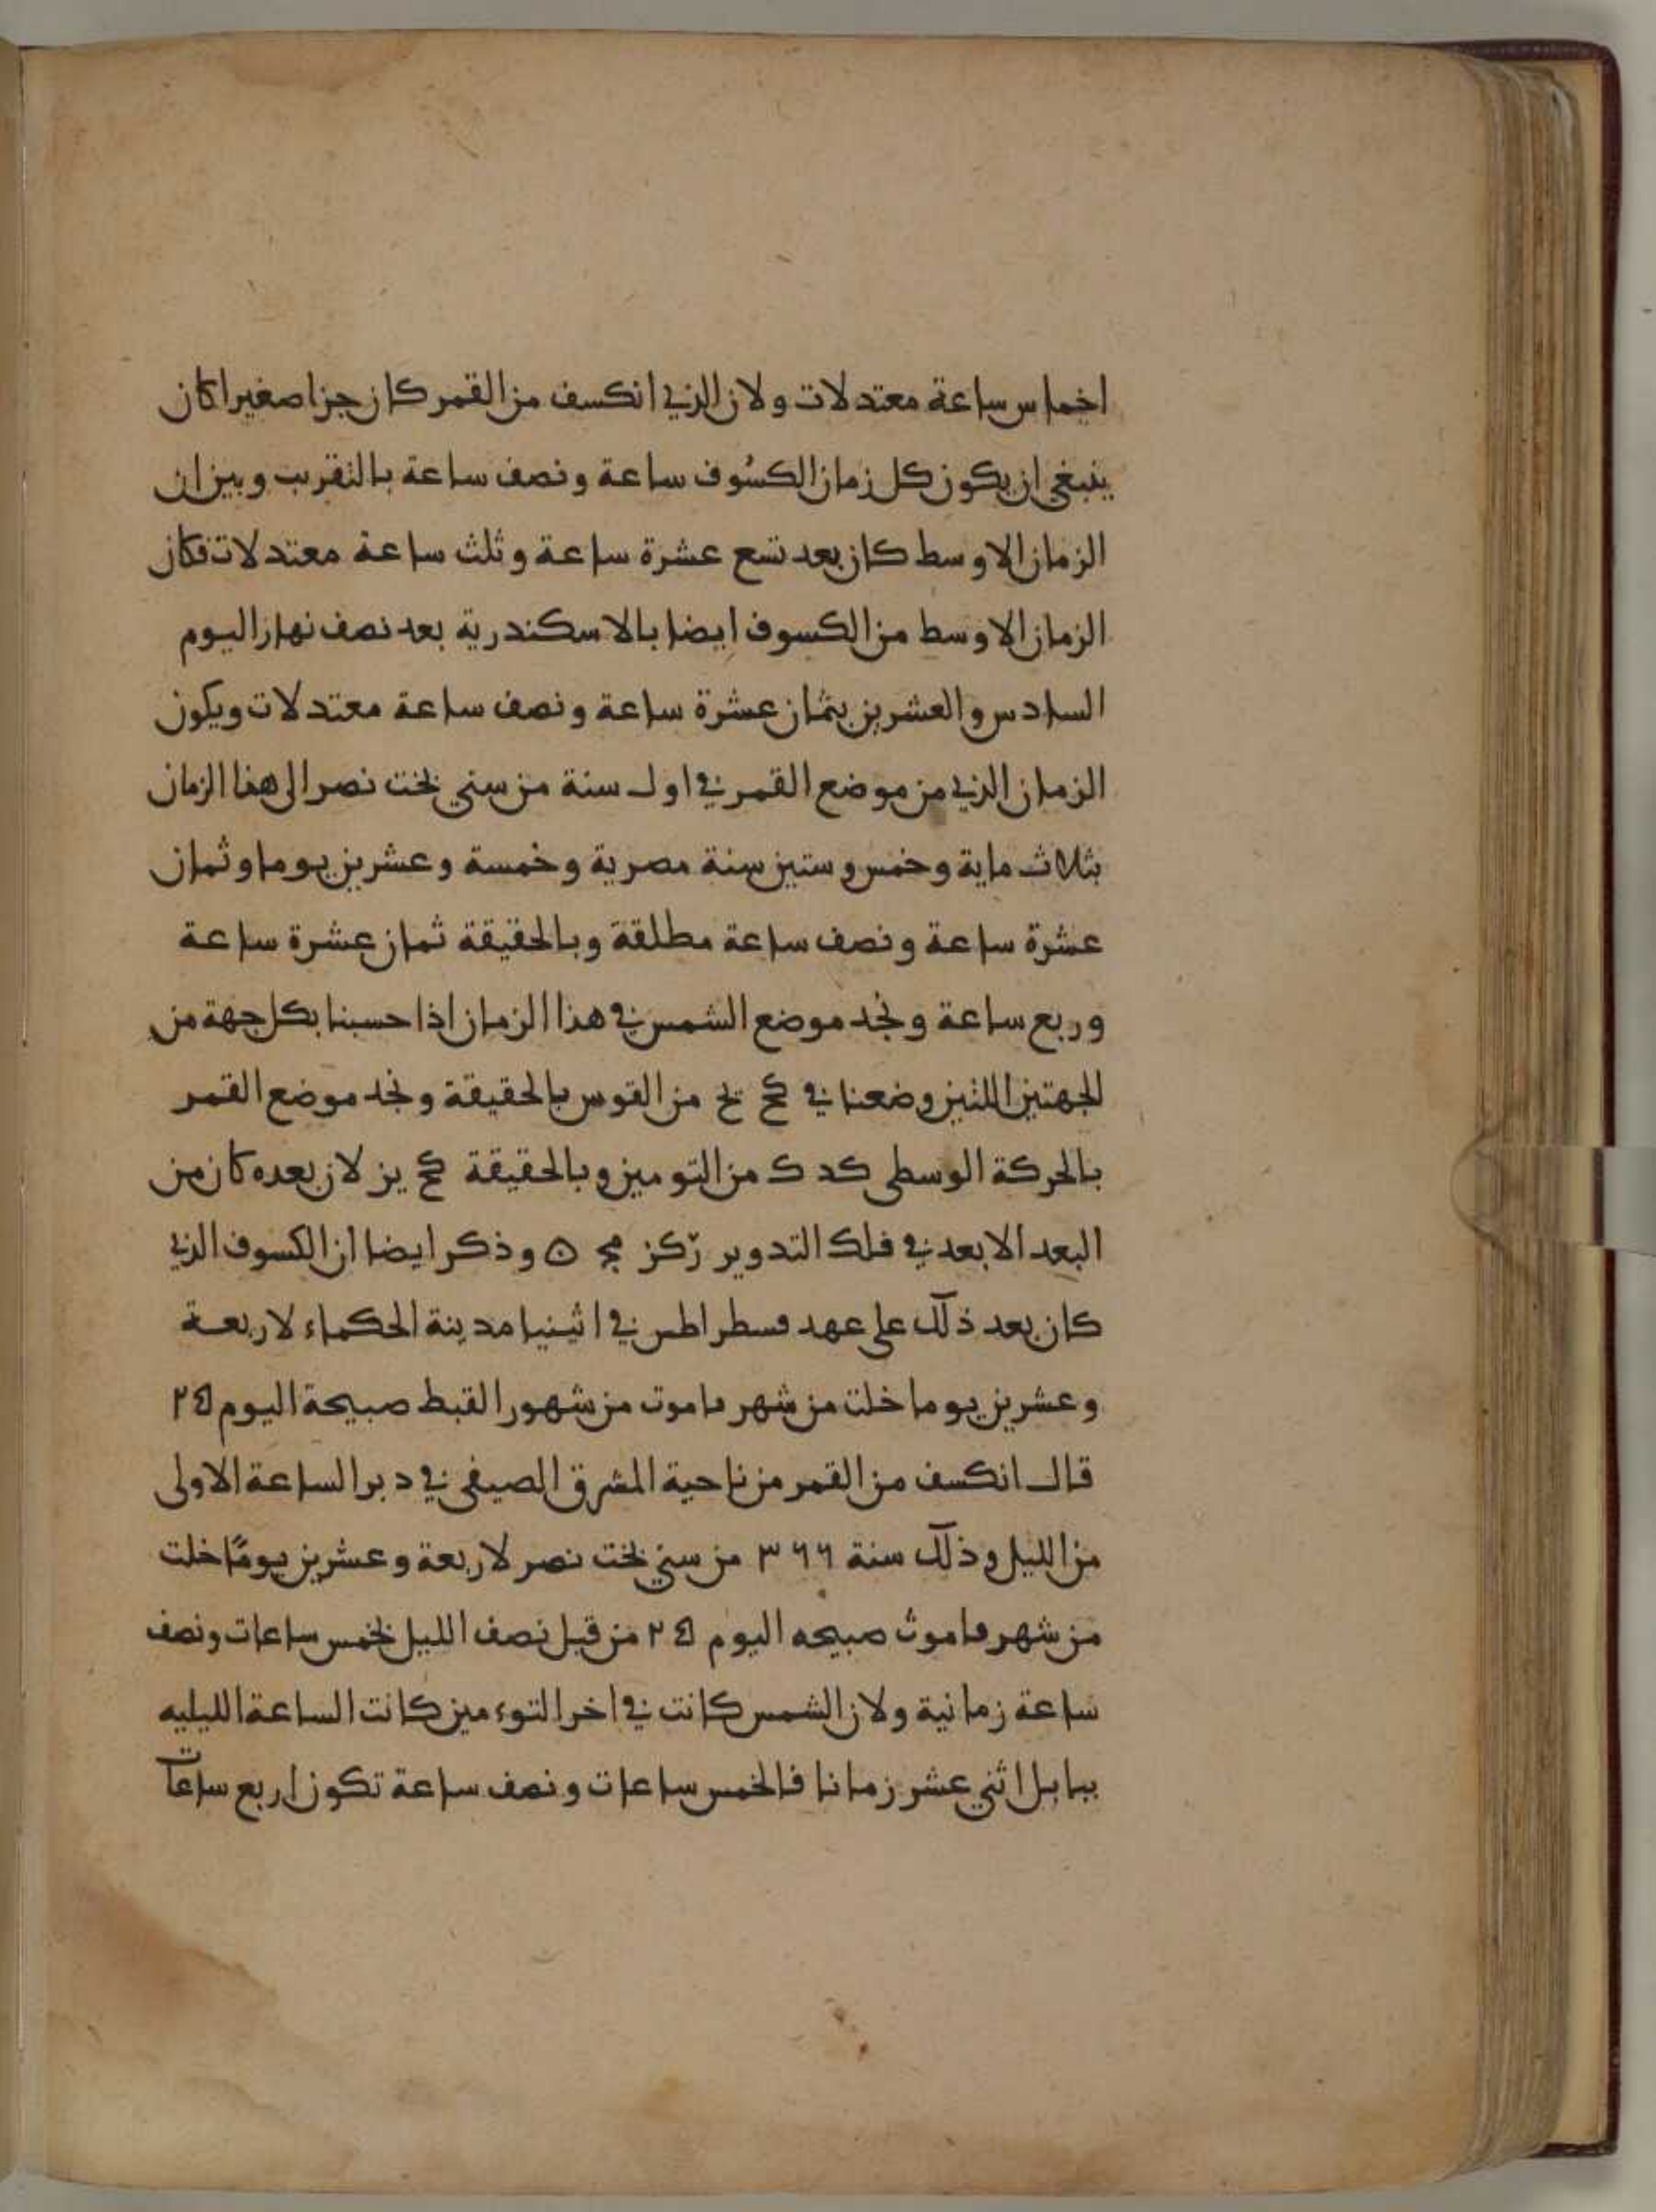 اخماس ساعة معتدلات ولان الذي انكسف من القمر كان جزا صغيرا كان
ينبغي ان يكون كل زمان الكسُوف ساعة ونصف ساعة بالتقريب وبين ان
الزمان الاوسط كان بعد تسع عشرة ساعة وثلث ساعة معتدلات فكان
الزمان الاوسط من الكسوف ايضا بالاسكندرية بعد نصف نهار اليوم
السادس والعشرين بثمان عشرة ساعة ونصف ساعة معتدلات ويكون
الزمان الذي من موضع القمر في اول سنة من سني بخت نصر الى هذا الزمان
بثلاث ماية وخمس وستين سنة مصرية وخمسة وعشرين يوما وثمان
عشرة ساعة ونصف ساعة مطلقة وبالحقيقة ثمان عشرة ساعة
وربع ساعة ونجد موضع الشمس في هذا الزمان اذا حسبنا بكل جهة من
الجهتين اللتين وضعنا في كح يح من القوس بالحقيقة ونجد موضع القمر
بالحركة الوسطى كد ك من التومين وبالحقيقة كح يز لان بعده كان من
البعد الابعد في فلك التدوير رَكز مج ۞ وذكر ايضا ان الكسوف الذي
كان بعد ذلك على عهد فسطراطس في اثينيا مدينة الحكماء لاربعة
وعشرين يوما خلت من شهر ماموت من شهور القبط صبيحة اليوم ٢٤
قال انكسف من القمر من ناحية المشرق الصيفي في دبر الساعة الاولى
من الليل وذلك سنة ٣٦٦ من سني بخت نصر لاربعة وعشرين يومًا خلت
من شهر ماموث صبيحه اليوم ٢٤ من قبل نصف الليل بخمس ساعات ونصف
ساعة زمانية ولان الشمس كانت في اخر التوءمين كانت الساعة الليليه
ببابل اثني عشر زمانا فالخمس ساعات ونصف ساعة تكون اربع ساعات